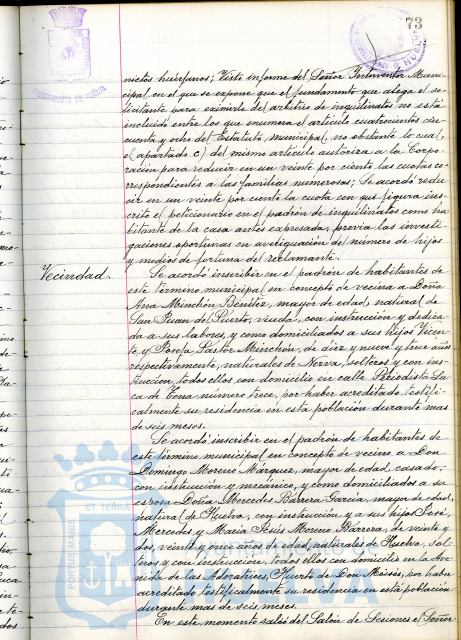 73
AYUNTAMIENTO DE HUELVA
nietos huérfanos; Visto informe del Señor Interventor Muni-
cipal en el que se expone que el fundamento que alega el so-
licitante para eximirle del arbitrio de inquilinatos no está
incluido entre los que enumera el artículo cuatrocientos cin-
cuenta y ocho del Estatuto municipal, no obstante lo cual,
el apartado c) del mismo artículo autoriza a la Corpo-
ración para reducir en un veinte por ciento las cuotas co-
rrespondientes a las familias numerosas; Se acordó redu-
cir en un veinte por ciento la cuota con que figura ins-
crito el peticionario en el padrón de inquilinatos como ha-
bitante de la casa antes expresada, previa las investi-
gaciones oportunas en averiguación del número de hijos
y medios de fortuna del reclamante.
Vecindad.
Se acordó inscribir en el padrón de habitantes de
este término municipal en concepto de vecina a Doña
Ana Minchón Benítez, mayor de edad, natural de
San Juan del Puerto, viuda, con instrucción y dedica-
da a sus labores, y como domiciliados a sus hijos Vicen-
te y Josefa Pastor Minchón, de diez y nueve y trece años
respectivamente, naturales de Nerva, solteros y con ins-
trucción, todos ellos con domicilio en calle Periodista Lu-
ca de Tena número trece, por haber acreditado testifi-
calmente su residencia en esta población durante mas
de seis meses.
Se acordó inscribir en el padrón de habitantes de
este término municipal en concepto de vecino a Don
Domingo Moreno Márquez, mayor de edad, casado,
con instrucción y mecánico, y como domiciliados a su
esposa Doña Mercedes Barrera García, mayor de edad,
natural de Huelva, con instrucción y a sus hijos José
Mercedes y María Jesús Moreno Barrera, de veinte y
dos, veinte y once años de edad, naturales de Huelva, sol-
teros y con instrucción, todos ellos con domicilio en la Ave-
nida de las Adoratrices, Huerto de Don Moisés, por haber
acreditado testificalmente su residencia en esta población
durante mas de seis meses.
En este momento sale del Salón de Sesiones el Señor
PORTUS MARIS ET TERRAE